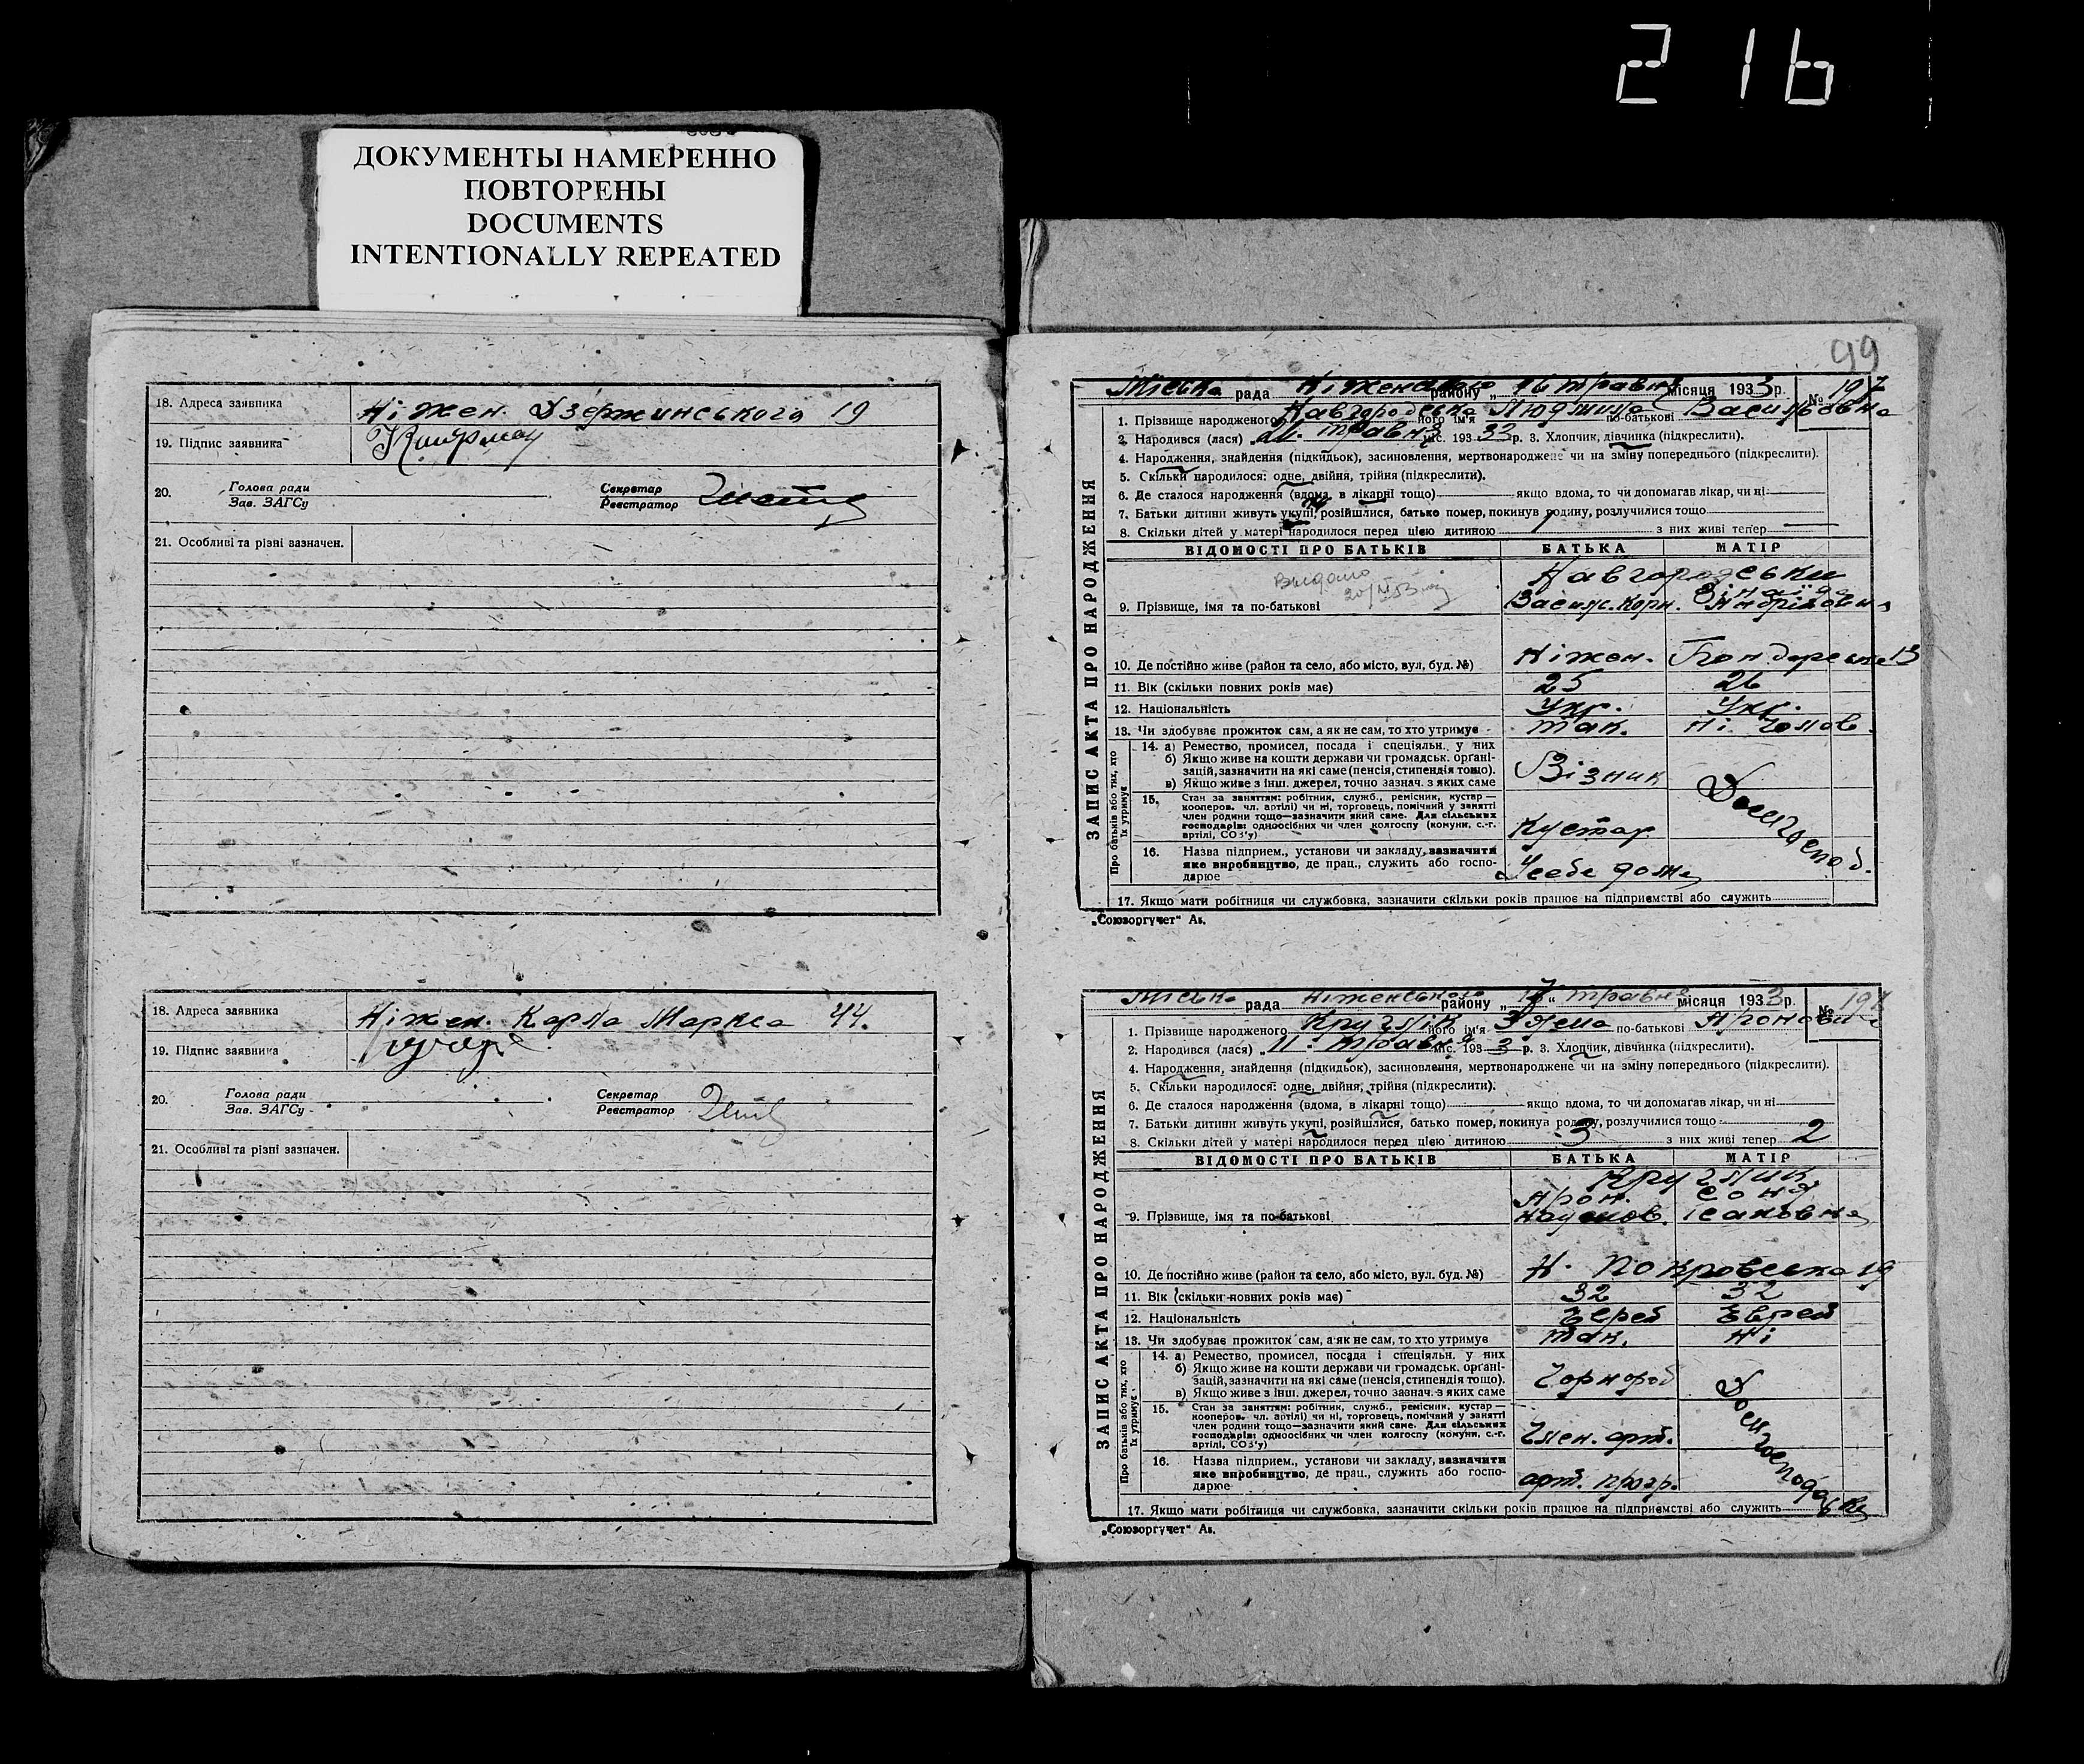 216
ДОКУМЕНТЫ НАМЕРЕННО
ПОВТОРЕНЫ
DOCUMENTS
INTENTIONALLY REPEATED
18. Адреса заявника Ніжен. Дзержинського 19
19. Підпис заявника
20. Голова ради
Зав. ЗАГСу
Секретар
Реєстратор
21. Особливі та різні зазначен.
18. Адреса заявника Ніжен. Карла Маркса 44.
19. Підпис заявника
20. Голова ради
Зав. ЗАГСу
Секретар
Реєстратор
21. Особливі та різні зазначен.
99
ЗАПИС АКТА ПРО НАРОДЖЕННЯ
Міська рада Ніженського району „16 травня місяця 1933 р. № 197
1. Прізвище народженого Навгородська його ім'я Людмила по-батькові Васильовна
2. Народився (лася) „11. травня міс. 193 33 р. 3. Хлопчик, дівчинка (підкреслити).
4. Народження, знайдення (підкидьок), засиновлення, мертвонароджене чи на зміну попереднього (підкреслити).
5. Скільки народилося: одне, двійня, трійня (підкреслити).
6. Де сталося народження (вдома, в лікарні тощо) якщо вдома, то чи допомагав лікар, чи ні
7. Батьки дитини живуть укупі, розійшлися, батько помер, покинув родину, розлучилися тощо
8. Скільки дітей у матері народилося перед цією дитиною 1 з них живі тепер —
ВІДОМОСТІ ПРО БАТЬКІВ БАТЬКА МАТІР
Видано
Навгородськи
9. Прізвище, імя та по-батькові Васил. Корн. Зінаїда
10. Де постійно живе (район та село, або місто, вул, буд. №) Ніжен. Бондарська 13
11. Вік (скільки повних років має) 25 26
12. Національність Укр. Укр.
13. Чи здобуває прожиток сам, а як не сам, то хто утримує так. ні. Чолов.
Про батьків або тих, хто їх утримує
14. а) Ремество, промисел, посада і спеціяльн. у них
б) Якщо живе на кошти держави чи громадськ. органі-
зацій, зазначити на які саме (пенсія, стипендія тощо).
в) Якщо живе з інш. джерел, точно зазнач. з яких саме
Візник
Домгоспод.
15. Стан за заняттям: робітник, служб., ремісник, кустар —
кооперов. чл. артілі) чи ні, торговець, помічний у занятті
член родини тощо—зазначити який саме. Для сільських
господарів: одноосібних чи член колгоспу (комуни, с.-г.
артілі, СОЗ'у)
Кустар
16. Назва підприєм., установи чи закладу, зазначити
яке виробництво, де прац., служить або госпо-
дарює
У себе дома
17. Якщо мати робітниця чи службовка, зазначити скільки років працює на підприємстві або служить
„Союзоргучет“ Ав.
ЗАПИС АКТА ПРО НАРОДЖЕННЯ
Міська рада Ніженського району „17“ травня місяця 1933 р. № 198
1. Прізвище народженого Круглік його ім'я Зюема по-батькові Аронович
2. Народився (лася) „11. травня міс. 193 3 р. 3. Хлопчик, дівчинка (підкреслити).
4. Народження, знайдення (підкидьок), засиновлення, мертвонароджене чи на зміну попереднього (підкреслити).
5. Скільки народилося: одне, двійня, трійня (підкреслити).
6. Де сталося народження (вдома, в лікарні тощо) якщо вдома, то чи допомагав лікар, чи ні
7. Батьки дитини живуть укупі, розійшлися, батько помер, покинув родину, розлучилися тощо
8. Скільки дітей у матері народилося перед цією дитиною 3 з них живі тепер 2
ВІДОМОСТІ ПРО БАТЬКІВ БАТЬКА МАТІР
Круглик
Арон. Соня
9. Прізвище, імя та по-батькові Наумов. Ісаковна
10. Де постійно живе (район та село, або місто, вул. буд. №) Н. Покровська 19
11. Вік (скільки повних років має) 32 32
12. Національність Еврей Еврей
13. Чи здобуває прожиток сам, а як не сам, то хто утримує так. ні
Про батьків або тих, хто їх утримує
14. а) Ремество, промисел, посада і спеціяльн. у них
б) Якщо живе на кошти держави чи громадськ. органі-
зацій, зазначити на які саме (пенсія, стипендія тощо).
в) Якщо живе з інш. джерел, точно зазнач. з яких саме
Чорнороб
Домгосподарка
15. Стан за заняттям: робітник, служб., ремісник, кустар —
кооперов. чл. артілі) чи ні, торговець, помічний у занятті
член родини тощо—зазначити який саме. Для сільських
господарів: одноосібних чи член колгоспу (комуни, с.-г.
артілі, СОЗ'у)
Член. арт.
16. Назва підприєм., установи чи закладу, зазначити
яке виробництво, де прац., служить або госпо-
дарює
арт. прогр.
17. Якщо мати робітниця чи службовка, зазначити скільки років працює на підприємстві або служить
„Союзоргучет“ Ав.